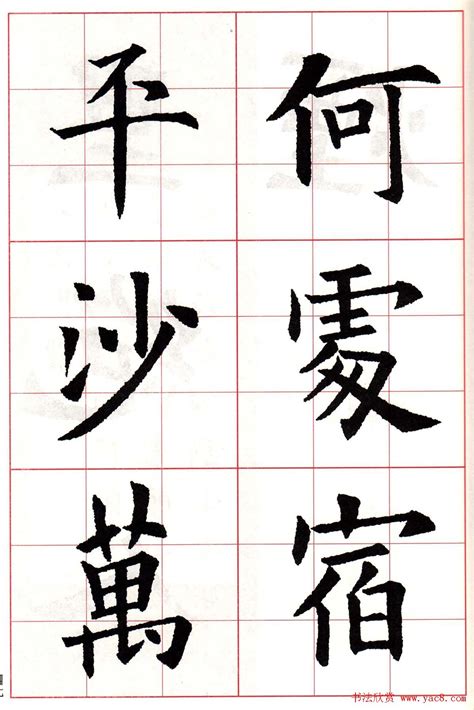 何處宿
平沙萬
书法欣赏 www.yac8.com